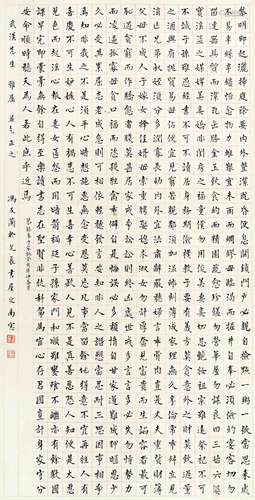 黎明即起灑掃庭除要內外整潔既昏便息關鎖門戶必親自檢點一粥一飯當思來處
不易半絲半縷恆念物力維艱宜未雨而綢繆毋臨渴而掘井自奉必須儉約宴客切勿
留連器具質而潔瓦缶勝金玉飲食約而精園蔬愈珍饈勿營華屋勿謀良田三姑六婆
實淫盜之媒婢美妾嬌非閨房之福奴僕勿用俊美妻妾切忌艷妝祖宗雖遠祭祀不可
不誠子孫雖愚經書不可不讀居身務期質樸教子要有義方勿貪意外之財勿飲過量
之酒與肩挑貿易毋佔便宜見貧苦親鄰須加溫恤刻薄成家理無久享倫常乖舛立見
消亡兄弟叔姪須分多潤寡長幼內外宜法肅辭嚴聽婦言乖骨肉豈是丈夫重資財薄
父母不成人子嫁女擇佳婿毋索重聘娶媳求淑女勿計厚奩見富貴而生諂容者最可
恥遇貧窮而作驕態者賤莫甚居家戒爭訟訟則終凶處世戒多言言多必失勿恃勢力
而凌逼孤寡毋貪口腹而恣殺生禽乖僻自是悔誤必多頹惰自甘家道難成狎暱惡少
久必受其累屈志老成急則可相依輕聽發言安知非人之譖愬當忍耐三思因事相爭焉
知非我之不是須平心暗想施惠無念受恩莫忘凡事當留餘地得意不宜再往人有
喜慶不可生妒嫉心人有禍患不可生喜幸心善欲人見不是真善惡恐人知便是大惡
見色而起淫心報在妻女匿怨而用暗箭禍延子孫家門和順雖饔飧不繼亦有餘歡國
課早完即囊橐無餘自得至樂讀書志在聖賢非徒科第為官心存君國豈計身家守分
安命順時聽天為人若此庶乎近焉
武漢先生 雅屬 正之